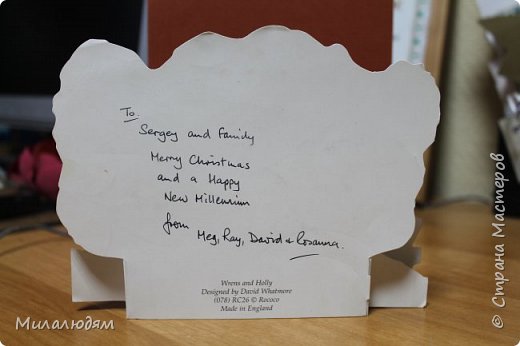 To
Sergey and Family
Merry Christmas
and a Happy
New Millennium
from Meg, Ray, David & Rosanna.
Wrens and Holly
Designed by David Whatmore
(078) RC26 © Rococo
Made in England
Милалюдям
© Страна Мастеров